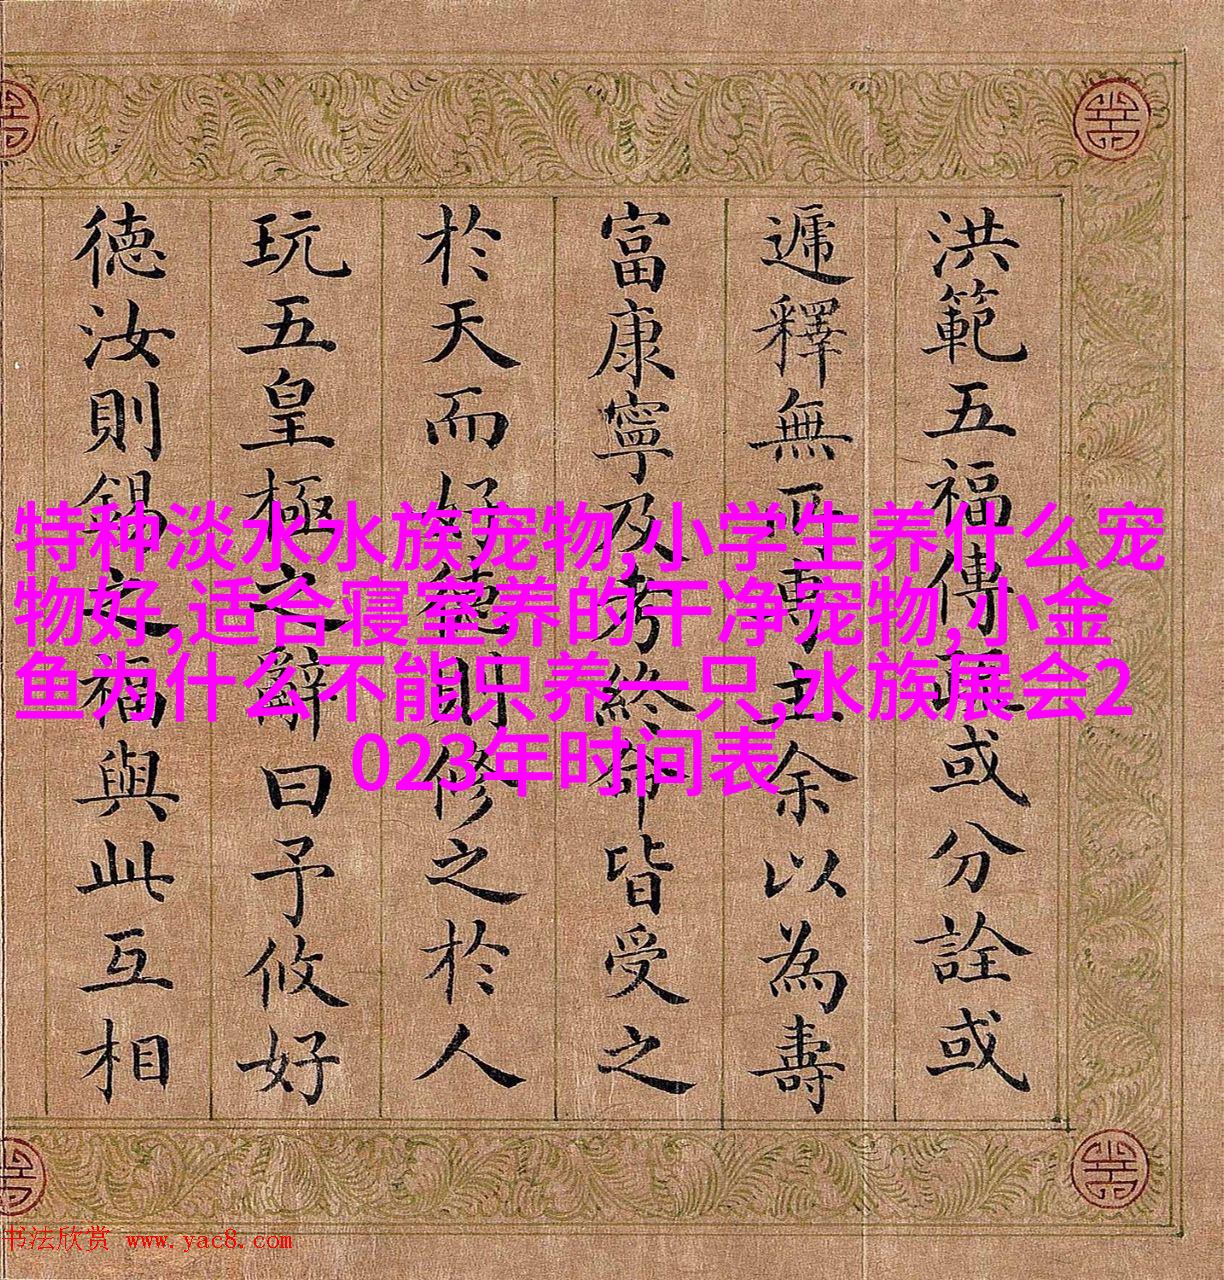 洪範五福傳疏或分詮或
遞釋無所專主余以為壽
富康寧及考終命皆受之
於天而好德則修之於人
玩五皇極之辭曰予攸好
德汝則錫之福與此互相
特种淡水水族宠物,小学生养什么宠
物好,适合寝室养的干净宠物,小金
鱼为什么不能只养一只,水族展会2
023年时间表
书法欣赏 www.yac8.com